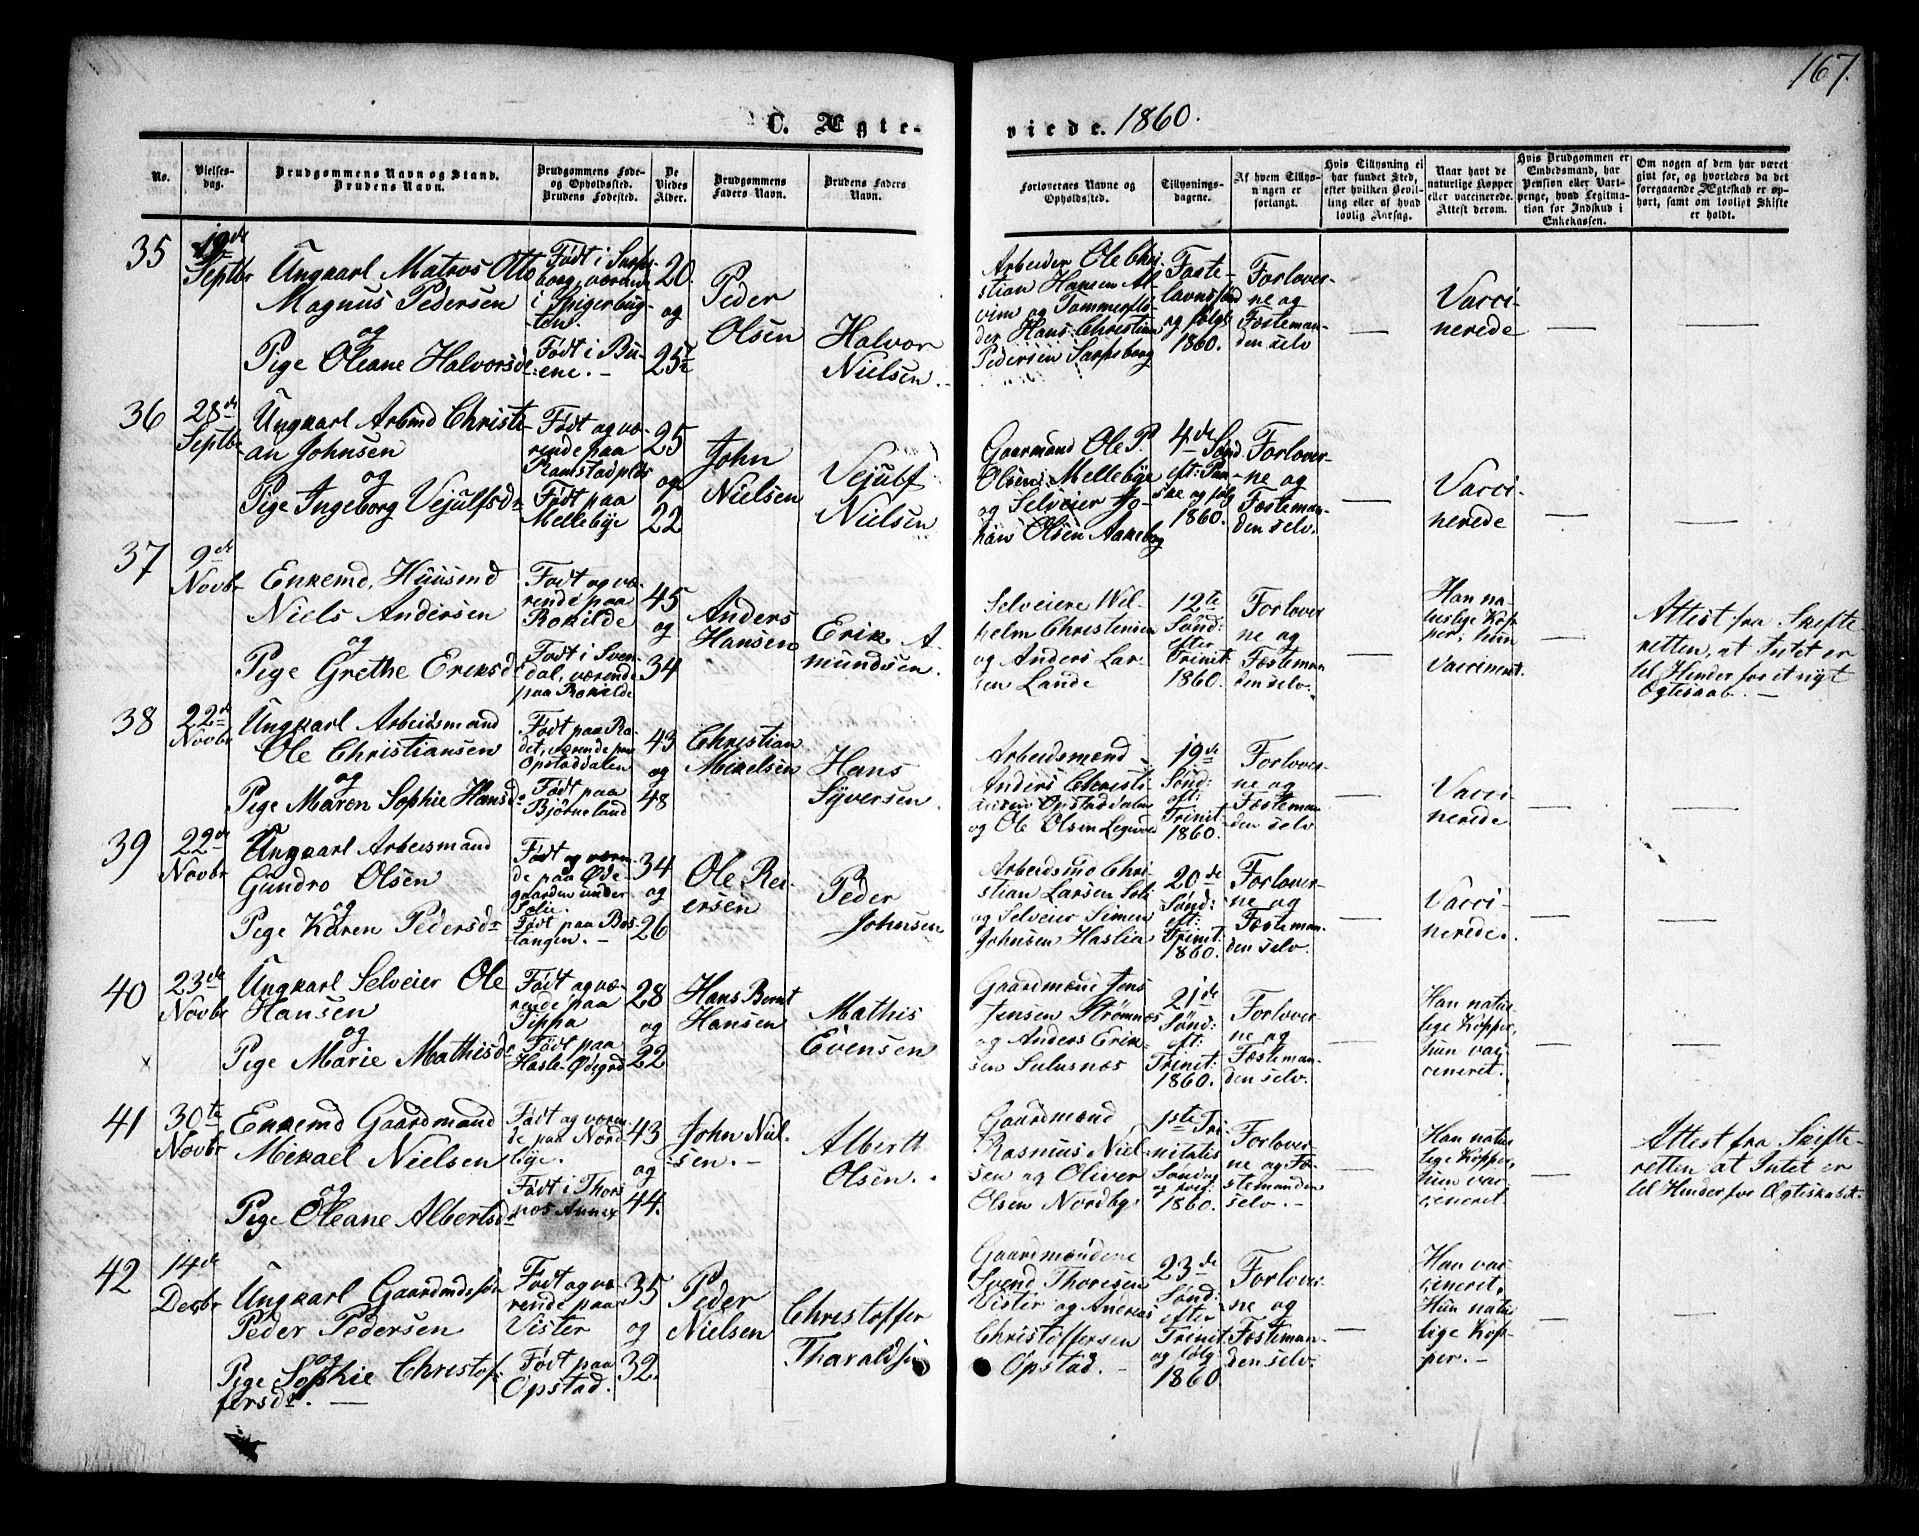 167.
C. Ægte-
viede. 1860.
No.
Vielses-
dag.
Brudgommens Navn og Stand.
Brudens Navn.
Brudgommens Føde-
og Opholdssted.
Brudens Fødested.
De
Viedes
Alder.
Brudgommens
Faders Navn.
Brudens Faders
Navn.
Forlovernes Navne og
Opholdssted.
Tillysnings-
dagene.
Af hvem Tillys-
ningen er
forlangt.
Hvis Tillysning ei
har fundet Sted,
efter hvilken Bevil-
ling eller af hvad
lovlig Aarsag.
Naar havt de
naturlige Kopper
eller vaccinerede.
Attest derom.
Hvis Brudgommen er
Embedsmand, har
Pension eller Vart-
penge, hvad Legitima-
tion for Indskud i
Enkekassen.
Om nogen af dem har været
givt før, og hvorledes da det
foregaaende Ægteskab er op-
hørt, samt om lovligt Skifte
er holdt.
35
19de
Septbr
Ungkarl Matros Otto
Magnus Pedersen
og
Pige Oleane Halvorsd
Født i Sarps-
borg, værende
i Spigerbug-
ten.
Født i Bu-
ene. -
20
og
25
Peder
Olsen
Halvor
Nielsen.
Arbeider Ole Chri-
stian Hansen Al-
vim og Tømmerflø-
der Hans Christian
Pedersen Sarpsborg
Faste-
lavnssønd
og følg
1860.
Forlover-
ne og
Fæsteman-
den selv
Vacci-
nerede
36
28de
Septbr
Ungkarl Arbmd Christi-
an Johnsen
og
Pige Ingeborg Vejulfsd
Født og væ-
rende paa
Ramstadplds
Født paa
Mellebye
25
og
22
John
Nielsen
Vejulf
Nielsen
Gaarmand Ole P.
Olsen Mellebye
og Selveier Jo-
han Olsen Aakeberg
4de Sønd
eft: Paa-
ske og følg
1860.
Forlover-
ne og
Fæsteman-
den selv.
Vacci-
nerede
37
9de
Novbr
Enkemd. Huusmd
Niels Andersen
og
Pige Grethe Eriksd
Født og væ-
rende paa
Rokilde
Født i Sven-
dal, værende
paa Rokilde
45
og
34
Anders
Hansen
Erik A-
mundsen.
Selveiere Wil-
helm Christensen
og Anders Lar-
sen Lande
12te
Sønd:
efter
Trinit:
1860.
Forlover
ne og
Fæsteman
den selv.
Han na-
turlige Kop-
per, hun
vaccineret.
Attest fra Skifte
retten, at Intet er
til Hinder for et nyt
Ægteskab. -
38
22de
Novbr
Ungkarl Arbeidsmand
Ole Christiansen
og
Pige Maren Sophie Hansd
Født paa Ra-
det, værende paa
Opstaddalen
Født paa
Bjørneland
43
og
48
Christian
Mikelsen
Hans
Syversen.
Arbeidsmænd
Anders Christi-
ansen Opstaddalen
og Ole Olsen
19de
Sønd:
eft:
Trinit:
1860.
Forlover-
ne og
Fæsteman
den selv
Vacci-
nerede
39
22de
Novbr
Ungkarl Arbeidsmand
Gundro Olsen
og
Pige Karen Pedersd
Født og væren-
de paa Øde-
gaarden under
Solie.
Født paa Bos-
tangen. -
34
og
26
Ole Rei-
ersen
Peder
Johnsen
Arbeidsmd Chri-
stian Larsen Soli
og Selveier Simen
Johnsen Haslia
20de
Sønd:
eft:
Trinit:
1860.
Forlover-
ne og
Fæsteman-
den selv.
Vacci-
nerede.
40
23de
Novbr
Ungkarl Selveier Ole
Hansen
og
Pige Marie Mathisd
Født og væ-
rende paa
Tippa
Født paa
Hasle-Ødegrd
28
og
22
Hans Bernt
Hansen
Mathis
Evensen
Gaardmænd Jens
Jensen Strømnæs
og Anders Erik-
sen Sulusnæs
21de
Sønd:
eft:
Trinit:
1860.
Forlover-
ne og
Fæsteman-
den selv.
Han natur
lige Kopper,
hun vac-
cineret.
41
30te
Novbr
Enkemd Gaardmand
Mikael Nielsen
og
Pige Oleane Albertsd
Født og væren-
de paa Nord-
bye.
Født i Thors
nos Annex
43
og
44.
John Niel-
sen. -
Albertt
Olsen.
Gaardmænd
Rasmus Niel-
sen og Oliver
Olsen Nordby
1ste Tri-
nitatis
Søndag
og følg:
1860.
Forlover-
ne og Fæ-
stemanden
selv. -
Han natur
lige Kopper,
hun vac-
cineret.
Attest fra Skifte-
retten at Intet er
til Hinder for Ægteskabet.
42
14de
Decbr
Ungkarl Gaardmdssøn
Peder Pedersen
og
Pige Sophie Christof-
fersd.
Født og væ-
rende paa
Vister
Født paa
Opstad.
35
og
32.
Peder
Nielsen
Christoffer
Tharaldsen
Gaardmændene
Svend Thoresen
Vister og Andreas
Christoffersen
Opstad. -
23de
Sønd:
efter
Trinit:
og følg:
1860.
Forlover-
ne og
Fæsteman-
den selv.
Han vac-
cineret,
Hun natur
lige Kop-
per. -